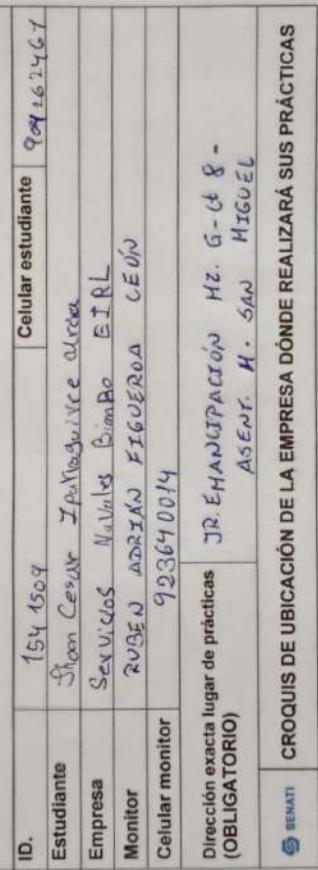 ID. 1541509 Celular estudiante 904262467
Estudiante Jhon Cesar Iparraguirre
Empresa Servicios Navales Bimbo EIRL
Monitor RUBEN ADRIÁN FIGUEROA LEÓN
Celular monitor 923640014
Dirección exacta lugar de prácticas JR. EMANCIPACIÓN MZ. G - Lt 8 -
(OBLIGATORIO) ASENT. H. SAN MIGUEL
SENATI CROQUIS DE UBICACIÓN DE LA EMPRESA DÓNDE REALIZARÁ SUS PRÁCTICAS